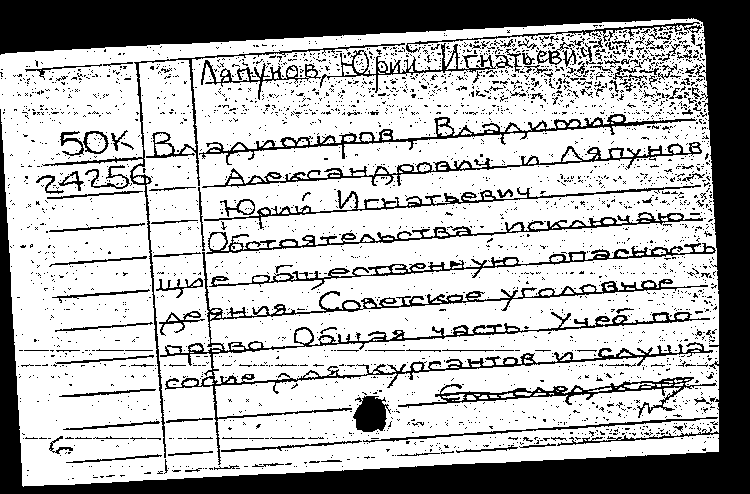 Ляпунов, Юрий Игнатьевич
50К Владимиров, Владимир
24256 Александрович и Ляпунов
Юрий Игнатьевич.
Обстоятельства, исключаю-
щие общественную опасность
деяния. Советское уголовное
право. Общая часть. Учеб. по-
собие для курсантов и слуша-
См. след. карт
б